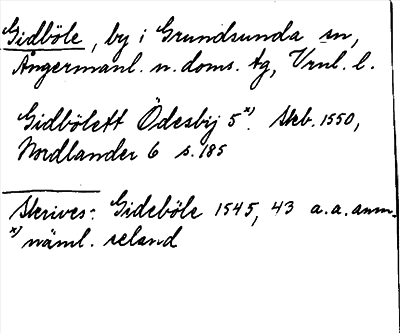 Gidböle, by i Grundsunda sn,
Ångermanl. n. doms. tg, Vrnl. l.
Gidbölett Ödesbij 5x). Skb. 1550,
Nordlander 6 s. 185
Skrives: Gideböle 1545, 43 a. a. anm.
x) näml. seland